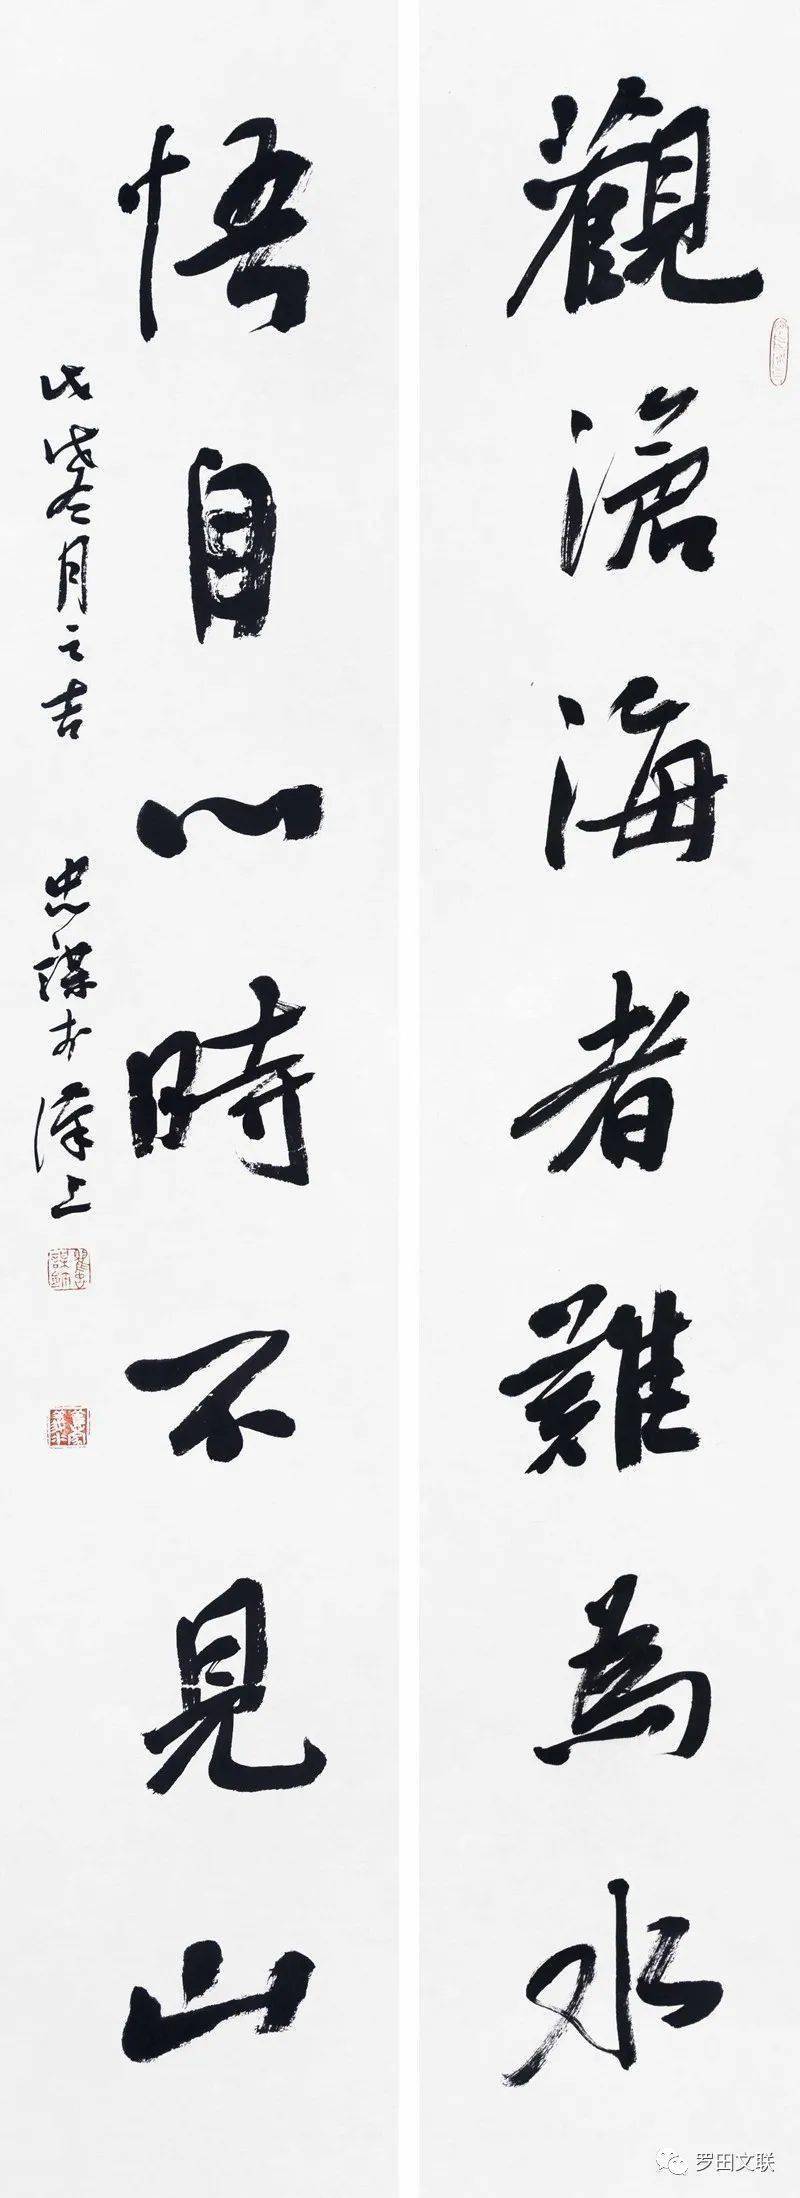 觀滄海者難為水
悟自心時不見山
戊戌冬月之吉
忠謀於漢上
罗田文联